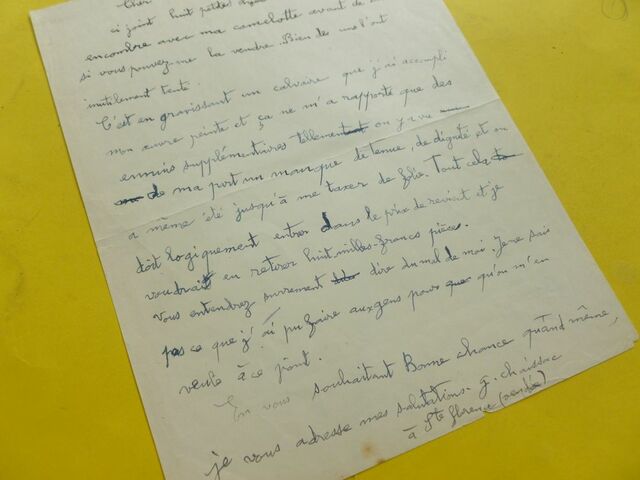 Cher
ci joint huit petites
encombre avec ma camelotte avant de
si vous pouvez me la vendre. Bien de uns l'ont
inutilement tenté.
C'est en gravissant un calvaire que j'ai accompli
mon œuvre peinte et ça ne m'a rapporté que des
ennuis supplémentaires tellement on y a vu
de ma part un manque de tenue, de dignité et on
a même été jusqu'à me taxer de folie. Tout cela
doit logiquement entrer dans le prix de revient et je
voudrait en retirer huit milles-francs pièces.
Vous entendrez surement dire du mal de moi. Je ne sais
pas ce que j'ai pu faire aux gens pour qu'on m'en
veule à ce point.
En vous souhaitant Bonne chance quand même,
je vous adresse mes salutations. g. chaissac
à Ste florence (vendée)